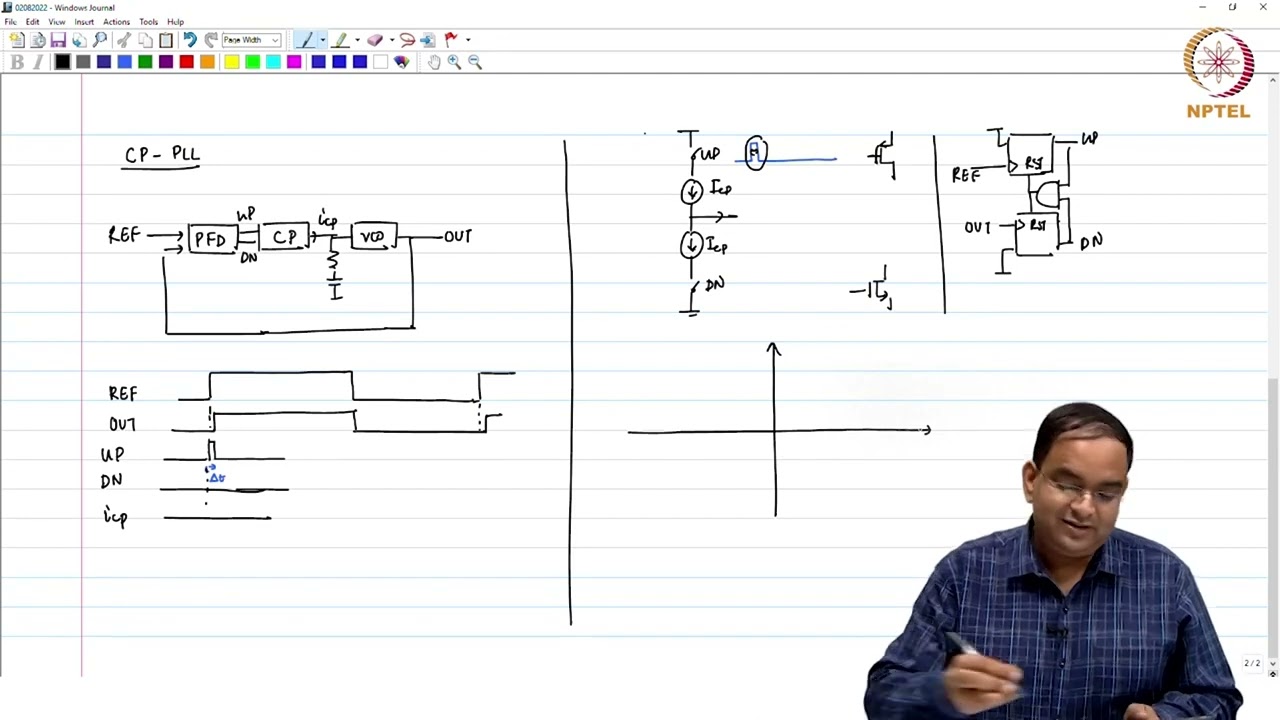 02082022 - Windows Journal
File Edit View Insert Actions Tools Help
Page Width
B I
NPTEL
CP - PLL
REF PFD UP DN CP icp VCO OUT
UP
Icp
Icp
DN
REF
OUT
RST
RST
UP
DN
REF
OUT
UP
Δt
DN
icp
2 / 2